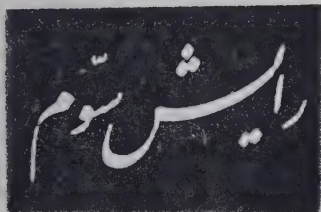 رایش سوّم